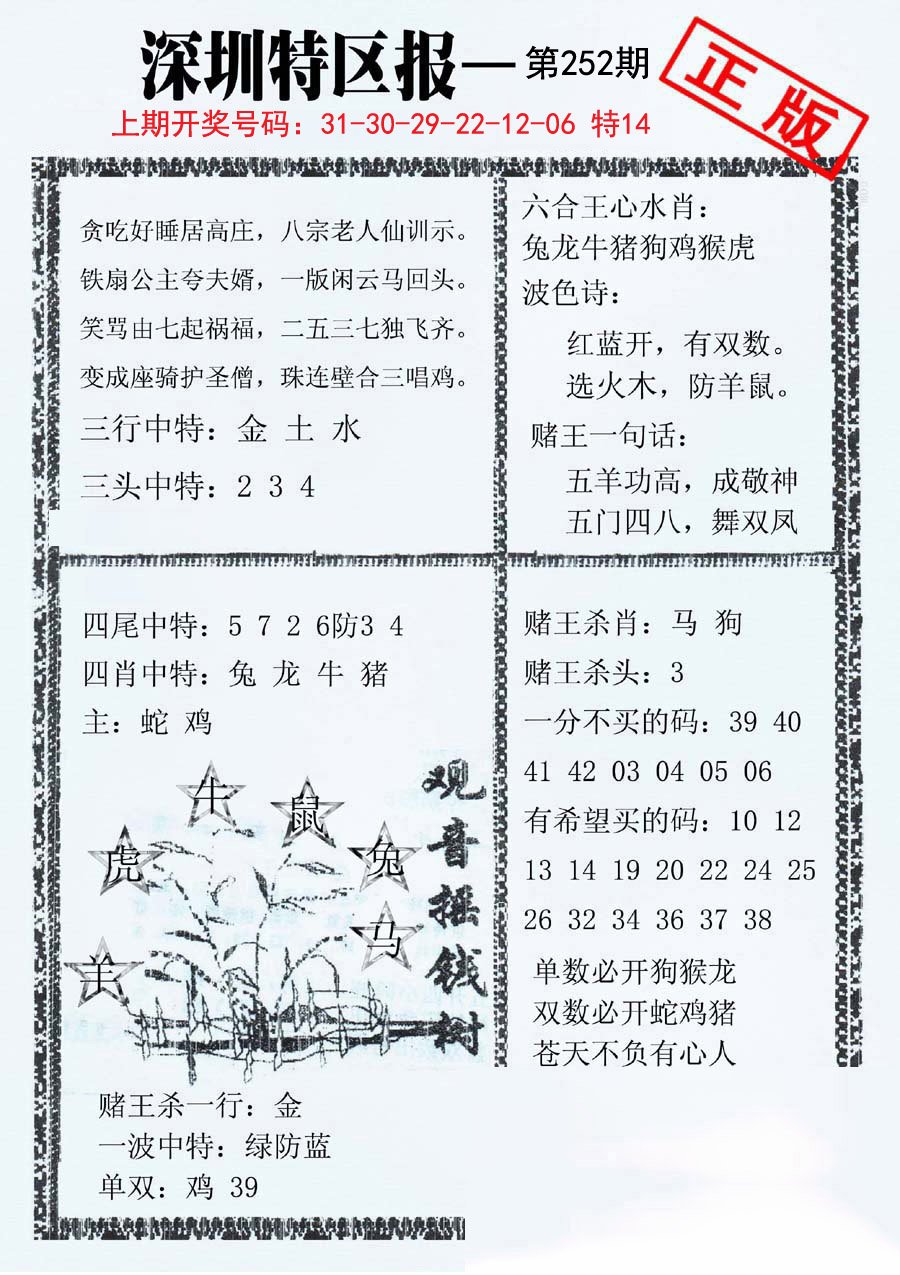 深圳特区报—第252期
正版
上期开奖号码：31-30-29-22-12-06 特14
贪吃好睡居高庄，八宗老人仙训示。
铁扇公主夸夫婿，一版闲云马回头。
笑骂由七起祸福，二五三七独飞齐。
变成座骑护圣僧，珠连壁合三唱鸡。
三行中特：金 土 水
三头中特：2 3 4
六合王心水肖：
兔龙牛猪狗鸡猴虎
波色诗：
红蓝开，有双数。
选火木，防羊鼠。
赌王一句话：
五羊功高，成敬神
五门四八，舞双凤
四尾中特：5 7 2 6防3 4
四肖中特：兔 龙 牛 猪
主：蛇 鸡
牛
鼠
虎
兔
马
羊
观音摇钱树
赌王杀一行：金
一波中特：绿防蓝
单双：鸡 39
赌王杀肖：马 狗
赌王杀头：3
一分不买的码：39 40
41 42 03 04 05 06
有希望买的码：10 12
13 14 19 20 22 24 25
26 32 34 36 37 38
单数必开狗猴龙
双数必开蛇鸡猪
苍天不负有心人